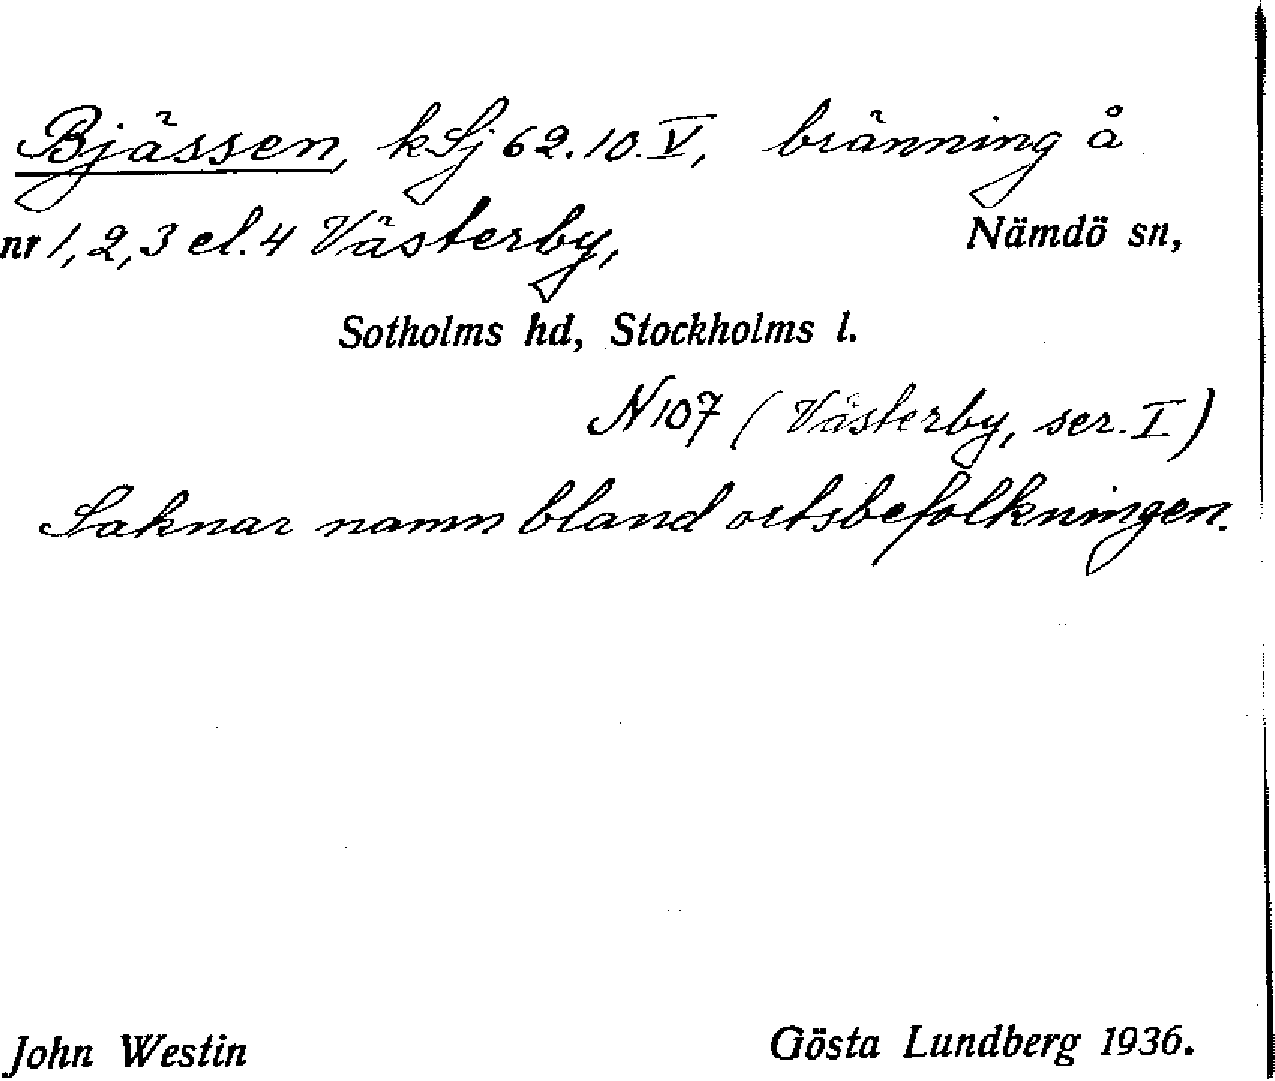 Bjässen, kSj 62.10.V, bränning å
nr 1, 2, 3 el. 4 Västerby, Nämdö sn,
Sotholms hd, Stockholms l.
N 107 (Västerby, ser. I)
Saknar namn bland ortsbefolkningen.
John Westin Gösta Lundberg 1936.